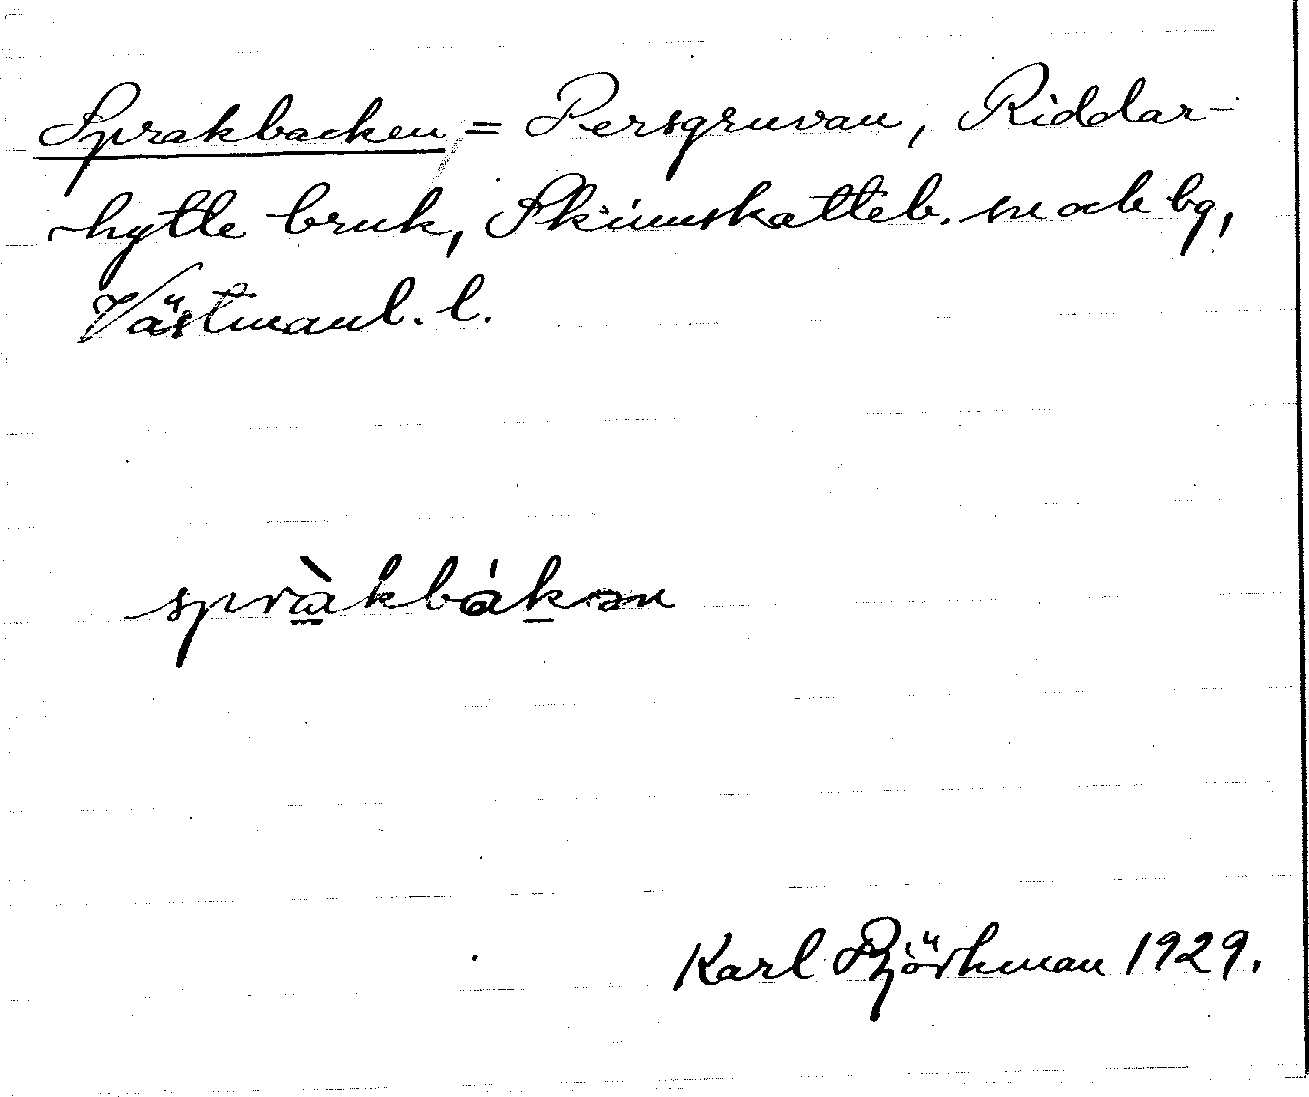 Sprakbacken = Persgruvan, Riddar-
hytte bruk, Skinnskatteb. sn och bg,
Västmanl. l.
spràkbákən
Karl Björkman 1929.